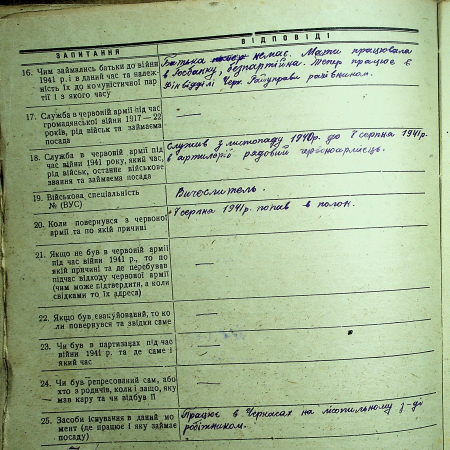 ЗАПИТАННЯ
ВІДПОВІДІ
16. Чим займались батьки до війни
1941 р. і в даний час та належ-
ність їх до комуністичної пар
тії і з якого часу
Батька немає. Мати працювала
в Госбанку, безпартійна. Тепер працює в
Фінвідділі Черк. Райуправи рахівником.
17. Служба в червоній армії під час
громадянської війни 1917—22
років, рід військ та займаєма
посада
—
18. Служба в червоній армії під
час війни 1941 року, який час,
рід військ, останнє військове
звання та займаєма посада
служив з листопаду 1940р. до 7 серпня 1941р.
в артилерії рядовий червоноармієць.
19. Військова спеціальність
№ (ВУС)
Вичеслитель.
20. Коли повернувся з червоної
армії та по якій причині
7 серпня 1941р. попав в полон.
21. Якщо не був в червоній армії
під час війни 1941 р., то по
якій причині та де перебував
підчас відходу червоної армії
(чим може підтвердити, а коли
свідками то їх адреса)
—
22. Якщо був евакуйований, то ко
ли повернувся та звідки саме
—
23. Чи був в партизанах під час
війни 1941 р. та де саме і
який час
—
24. Чи був репресований сам, або
хто з родичів, коли і защо, яку
мав кару та чи відбув її
—
25. Засоби існування в даний мо
мент (де працює і яку займає
посаду)
Працює в Черкасах на
з-ді
робітником.